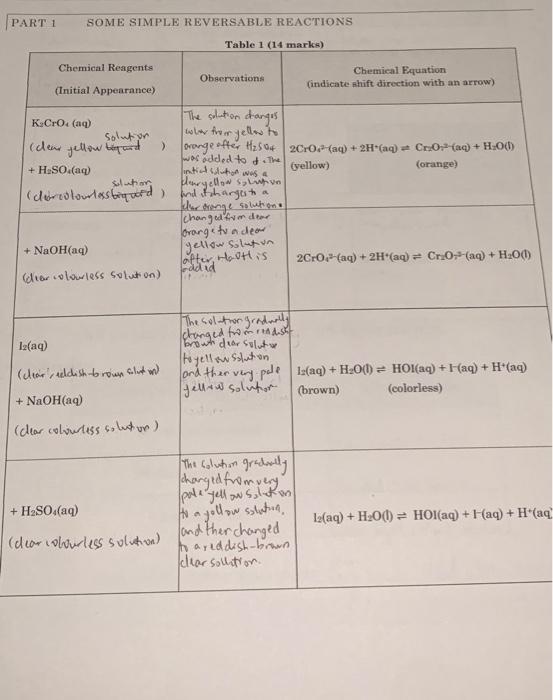 PART 1 SOME SIMPLE REVERSABLE REACTIONS
Table 1 (14 marks)
Chemical Reagents
(Initial Appearance)
Observations
Chemical Equation
(indicate shift direction with an arrow)
K₂CrO₄ (aq)
solution
(clear yellow )
+ H₂SO₄(aq)
solution
(clear colourless )
The solution changes
color from yellow to
orange after H₂SO4
was added to it. The
intial solution was a
clear yellow solution
and it changes to a
clear orange solution.
2CrO₄²⁻(aq) + 2H⁺(aq) ⇌ Cr₂O₇²⁻(aq) + H₂O(l)
(yellow) (orange)
+ NaOH(aq)
(clear colourless solution)
changed from clear
orange to a clear
yellow solution
after NaOH is
added
2CrO₄²⁻(aq) + 2H⁺(aq) ⇌ Cr₂O₇²⁻(aq) + H₂O(l)
I₂(aq)
(clear, reddish-brown solution)
+ NaOH(aq)
(clear colourless solution)
The solution gradually
changed from reddish
brown clear solution
to yellow solution
and then very pale
yellow solution
I₂(aq) + H₂O(l) ⇌ HOI(aq) + I⁻(aq) + H⁺(aq)
(brown) (colorless)
+ H₂SO₄(aq)
(clear colourless solution)
The solution gradually
changed from very
pale yellow solution
to a yellow solution,
and then changed
to a reddish-brown
clear sollution.
I₂(aq) + H₂O(l) ⇌ HOI(aq) + I⁻(aq) + H⁺(aq